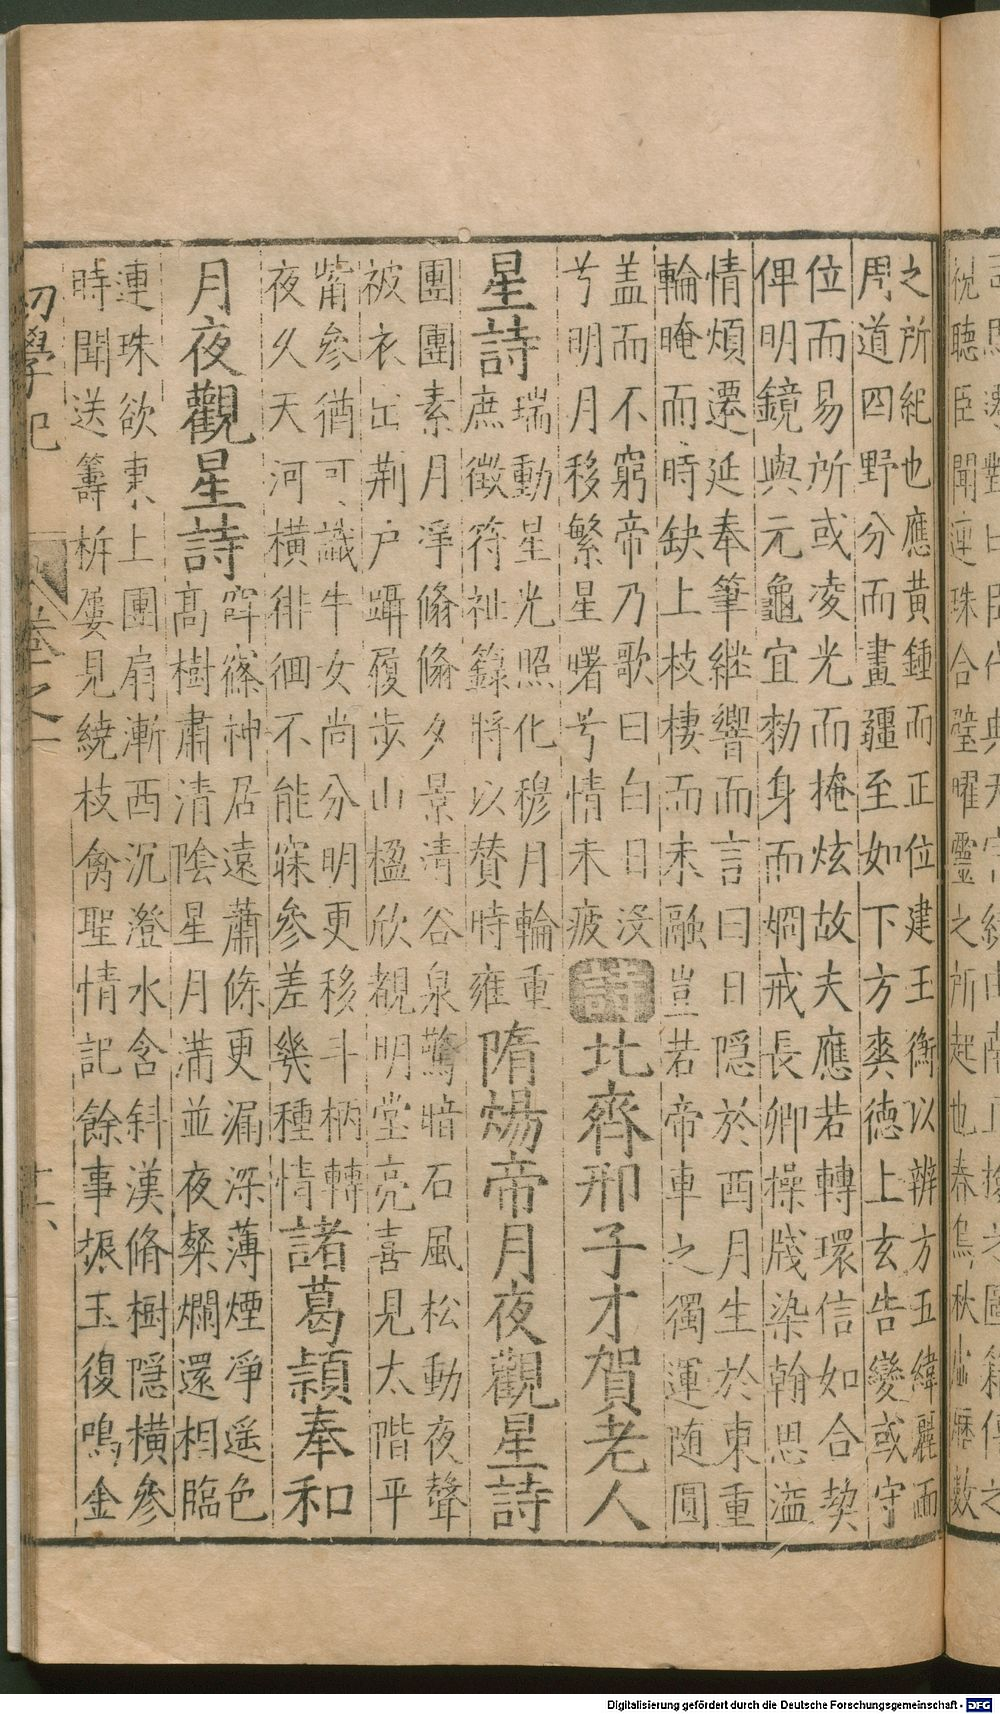 之所紀也應黃鍾而正位建玉衡以辨方五緯麗而
周道四野分而畫疆至如下方爽德上玄告變或守
位而易所或凌光而掩炫故夫應若轉環信如合契
俾明鏡與元龜宜勑身而罔戒長卿操牋染翰思溢
情煩遷延奉筆継響而言曰日隠於西月生於東重
輪晻而時缺上枝棲而未融豈若帝車之獨運随圓
盖而不窮帝乃歌曰白日沒
兮明月移繁星曙兮情未疲
詩北齊邢子才賀老人
星詩
瑞動星光照化穆月輪重
庶徵符祉籙將以賛時雍
隋煬帝月夜觀星詩
團團素月淨翛翛夕景清谷泉驚暗石風松動夜聲
被衣出荆户躡履步山楹欣覩明堂亮喜見太階平
觜參猶可識牛女尚分明更移斗柄轉
夜久天河橫徘徊不能寐參差幾種情
諸葛頴奉和
月夜觀星詩
窅篠神居遠蕭條更漏深薄煙凈遥色
高樹肅清陰星月滿並夜粲爛還相臨
連珠欲東上團扇漸西沉澄水含斜漢脩樹隠橫參
時聞送籌柝屢見繞枝禽聖情記餘事振玉復鳴金
初學記
卷之一
十六
視聽臣聞連珠合璧曜靈之所起也春烏秋
曆數